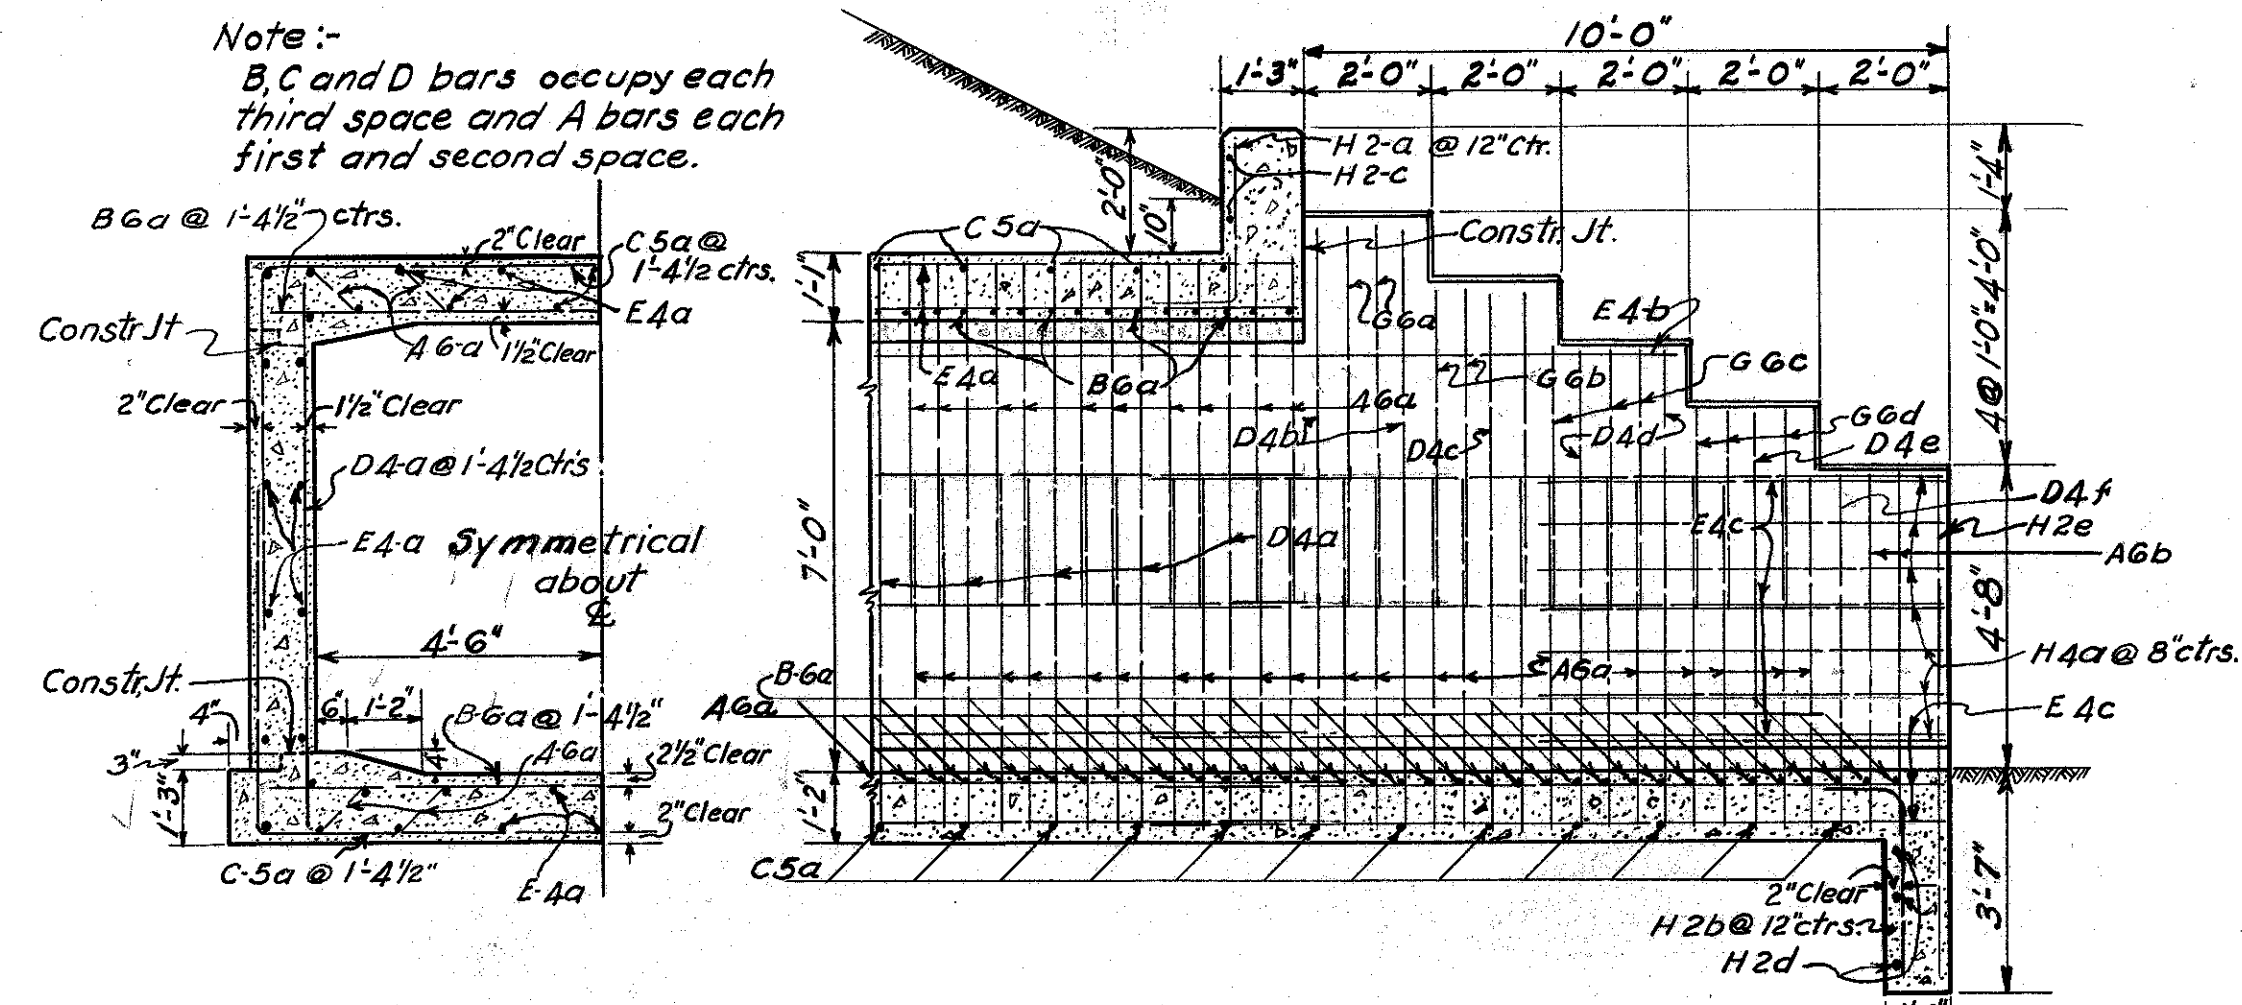 Note:-
B, C and D bars occupy each
third space and A bars each
first and second space.
B6a @ 1'-4½" ctrs.
2" Clear
C5a @
1'-4½ ctrs.
E4a
Constr. Jt
A6-a
1½" Clear
2" Clear
1½" Clear
D4-a @ 1'-4½ Ctrs
E4-a
Symmetrical
about
℄
4'-6"
Constr. Jt.
6"
1'-2"
4"
3"
4"
B-6a @ 1'-4½"
A-6a
2½" Clear
2" Clear
1'-3"
C-5a @ 1'-4½"
E-4a
10'-0"
1'-3"
2'-0"
2'-0"
2'-0"
2'-0"
2'-0"
H2-a @ 12" Ctr.
H2-c
2'-0"
10"
1'-4"
C5a
Constr. Jt.
1'-1"
G6a
E4b
4 @ 1'-0" = 4'-0"
E4a
B6a
G6b
G6c
A6a
D4b
D4c
D4d
G6d
D4e
7'-0"
D4a
E4c
D4f
H2e
A6b
4'-8"
B-6a
A6a
A6a
H4a @ 8" ctrs.
E4c
1'-2"
C5a
3'-7"
2" Clear
H2b @ 12" ctrs.
H2d